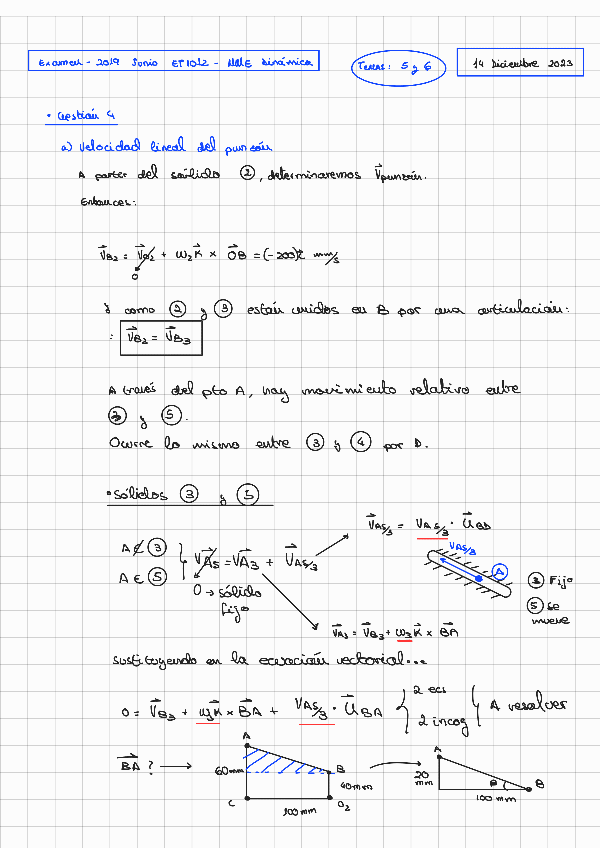 Examen - 2019 Junio ET1012 - MME Dinámica
Temas: 5 y 6
14 Diciembre 2023
• Cuestión 4
a) Velocidad lineal del punzón
A partir del sólido 2, determinaremos V⃗punzón.
Entonces:
V⃗B2 = V⃗O2 + ω2 K⃗ × O⃗B = (-200)i⃗ mm/s
0
y como 2 y 3 están unidos en B por una articulación:
: V⃗B2 = V⃗B3
A través del pto A, hay movimiento relativo entre
3 y 5.
Ocurre lo mismo entre 3 y 4 por D.
• Sólidos 3 y 5
V⃗A5/3 = VA5/3 · U⃗BD
A ∉ 3
A ∈ 5
V⃗A5 = V⃗A3 + V⃗A5/3
0 → sólido
fijo
VA5/3
A
3 Fijo
5 se
mueve
V⃗A3 = V⃗B3 + ω3 K⃗ × B⃗A
sustituyendo en la ecuación vectorial...
0 = V⃗B3 + ω3 K⃗ × B⃗A + VA5/3 · U⃗BA
2 ecs
2 incog
A resolver
B⃗A ? →
A
60mm
B
40mm
C
100mm
O2
A
20
mm
θ
B
100 mm